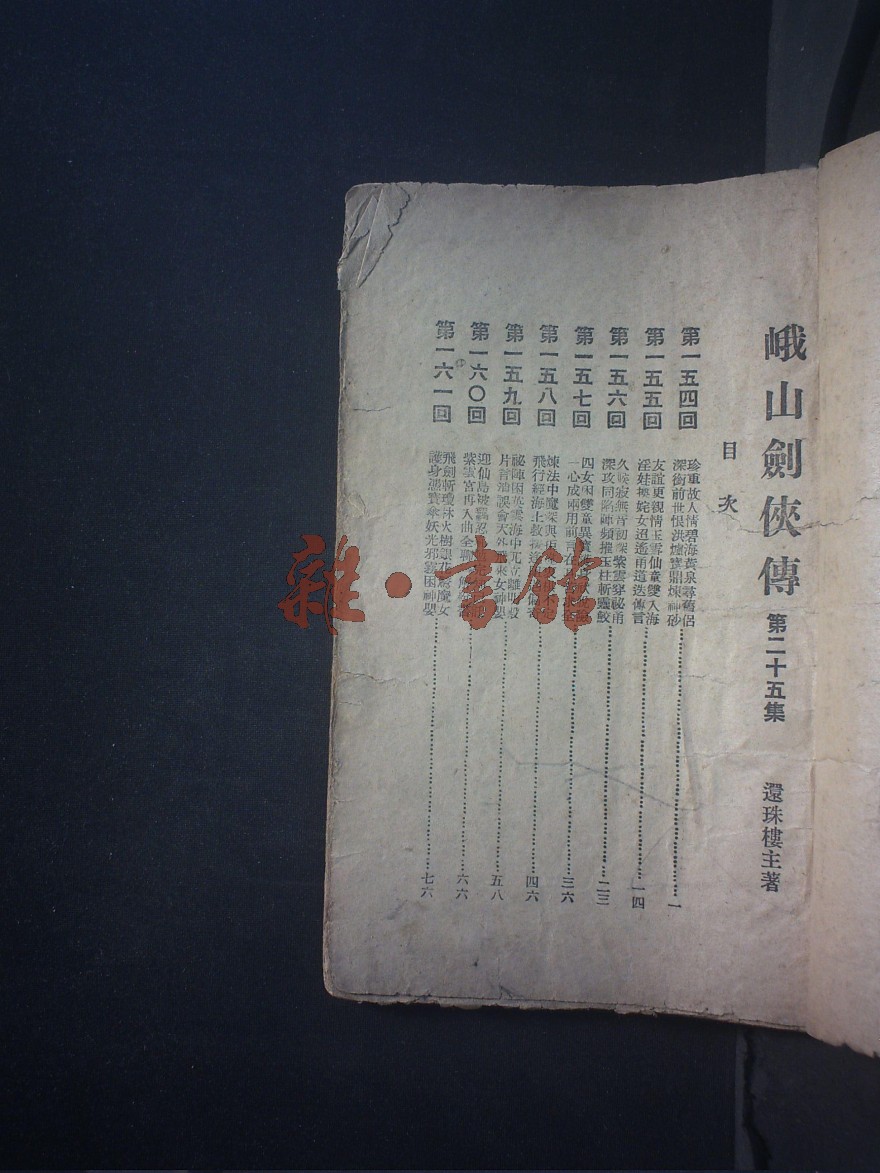 峨山劍俠傳 第二十五集 還珠樓主著
目次
第一五四回
珍重故人情碧海黃泉尋舊侶
深銜前世恨洪爐寶鼎煉神砂
一
第一五五回
友誼更親情玉雪仙童雙入海
淫娃拯姹女迢遙甬道迭傳言
一四
第一五六回
久峽寂無音初深紫雲穿祕甬
深攻同陷陣頻摧玉柱斬靈鮫
二三
第一五七回
四女困雙童異寶
一心成兩用前言在
三六
第一五八回
煉法中魔深
飛行經海上
四六
第一五九回
祕陣困英雲海中
片言迪誤會天外飛來女神嬰
五八
第一六〇回
迎仙島被
紫雲宮再入曲全
六六
第一六一回
飛劍斬瓊林火樹銀花魔女
護身憑寶傘妖光邪霧困神嬰
七六
雜·書館